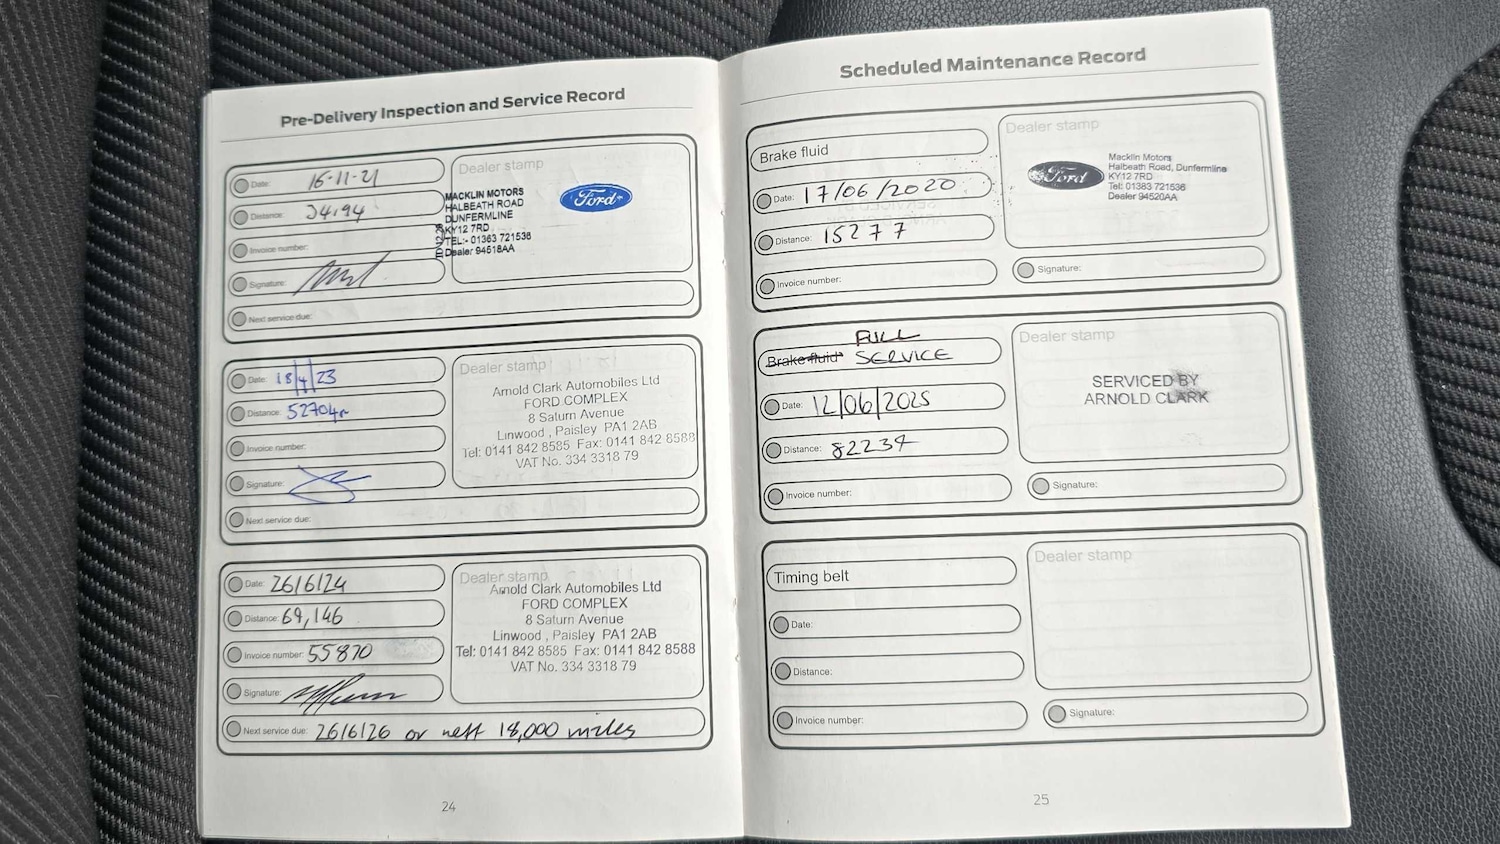 Pre-Delivery Inspection and Service Record
Date: 16-11-21
Distance: 34194
Invoice number:
Signature:
Next service due:
Dealer stamp
MACKLIN MOTORS
HALBEATH ROAD
DUNFERMLINE
KY12 7RD
TEL:- 01383 721536
Dealer 94518AA
Ford
Date: 18/4/23
Distance: 52704m
Invoice number:
Signature:
Next service due:
Dealer stamp
Arnold Clark Automobiles Ltd
FORD COMPLEX
8 Saturn Avenue
Linwood , Paisley PA1 2AB
Tel: 0141 842 8585 Fax: 0141 842 8588
VAT No. 334 3318 79
Date: 26/6/24
Distance: 69,146
Invoice number: 55870
Signature:
Next service due: 26/6/26 or next 18,000 miles
Dealer stamp
Arnold Clark Automobiles Ltd
FORD COMPLEX
8 Saturn Avenue
Linwood , Paisley PA1 2AB
Tel: 0141 842 8585 Fax: 0141 842 8588
VAT No. 334 3318 79
24
Scheduled Maintenance Record
Brake fluid
Date: 17/06/2020
Distance: 15277
Invoice number:
Dealer stamp
Ford
Macklin Motors
Halbeath Road, Dunfermline
KY12 7RD
Tel: 01383 721536
Dealer 94520AA
Signature:
Brake fluid FULL
SERVICE
Date: 12/06/2025
Distance: 82234
Invoice number:
Dealer stamp
SERVICED BY
ARNOLD CLARK
Signature:
Timing belt
Date:
Distance:
Invoice number:
Dealer stamp
Signature:
25